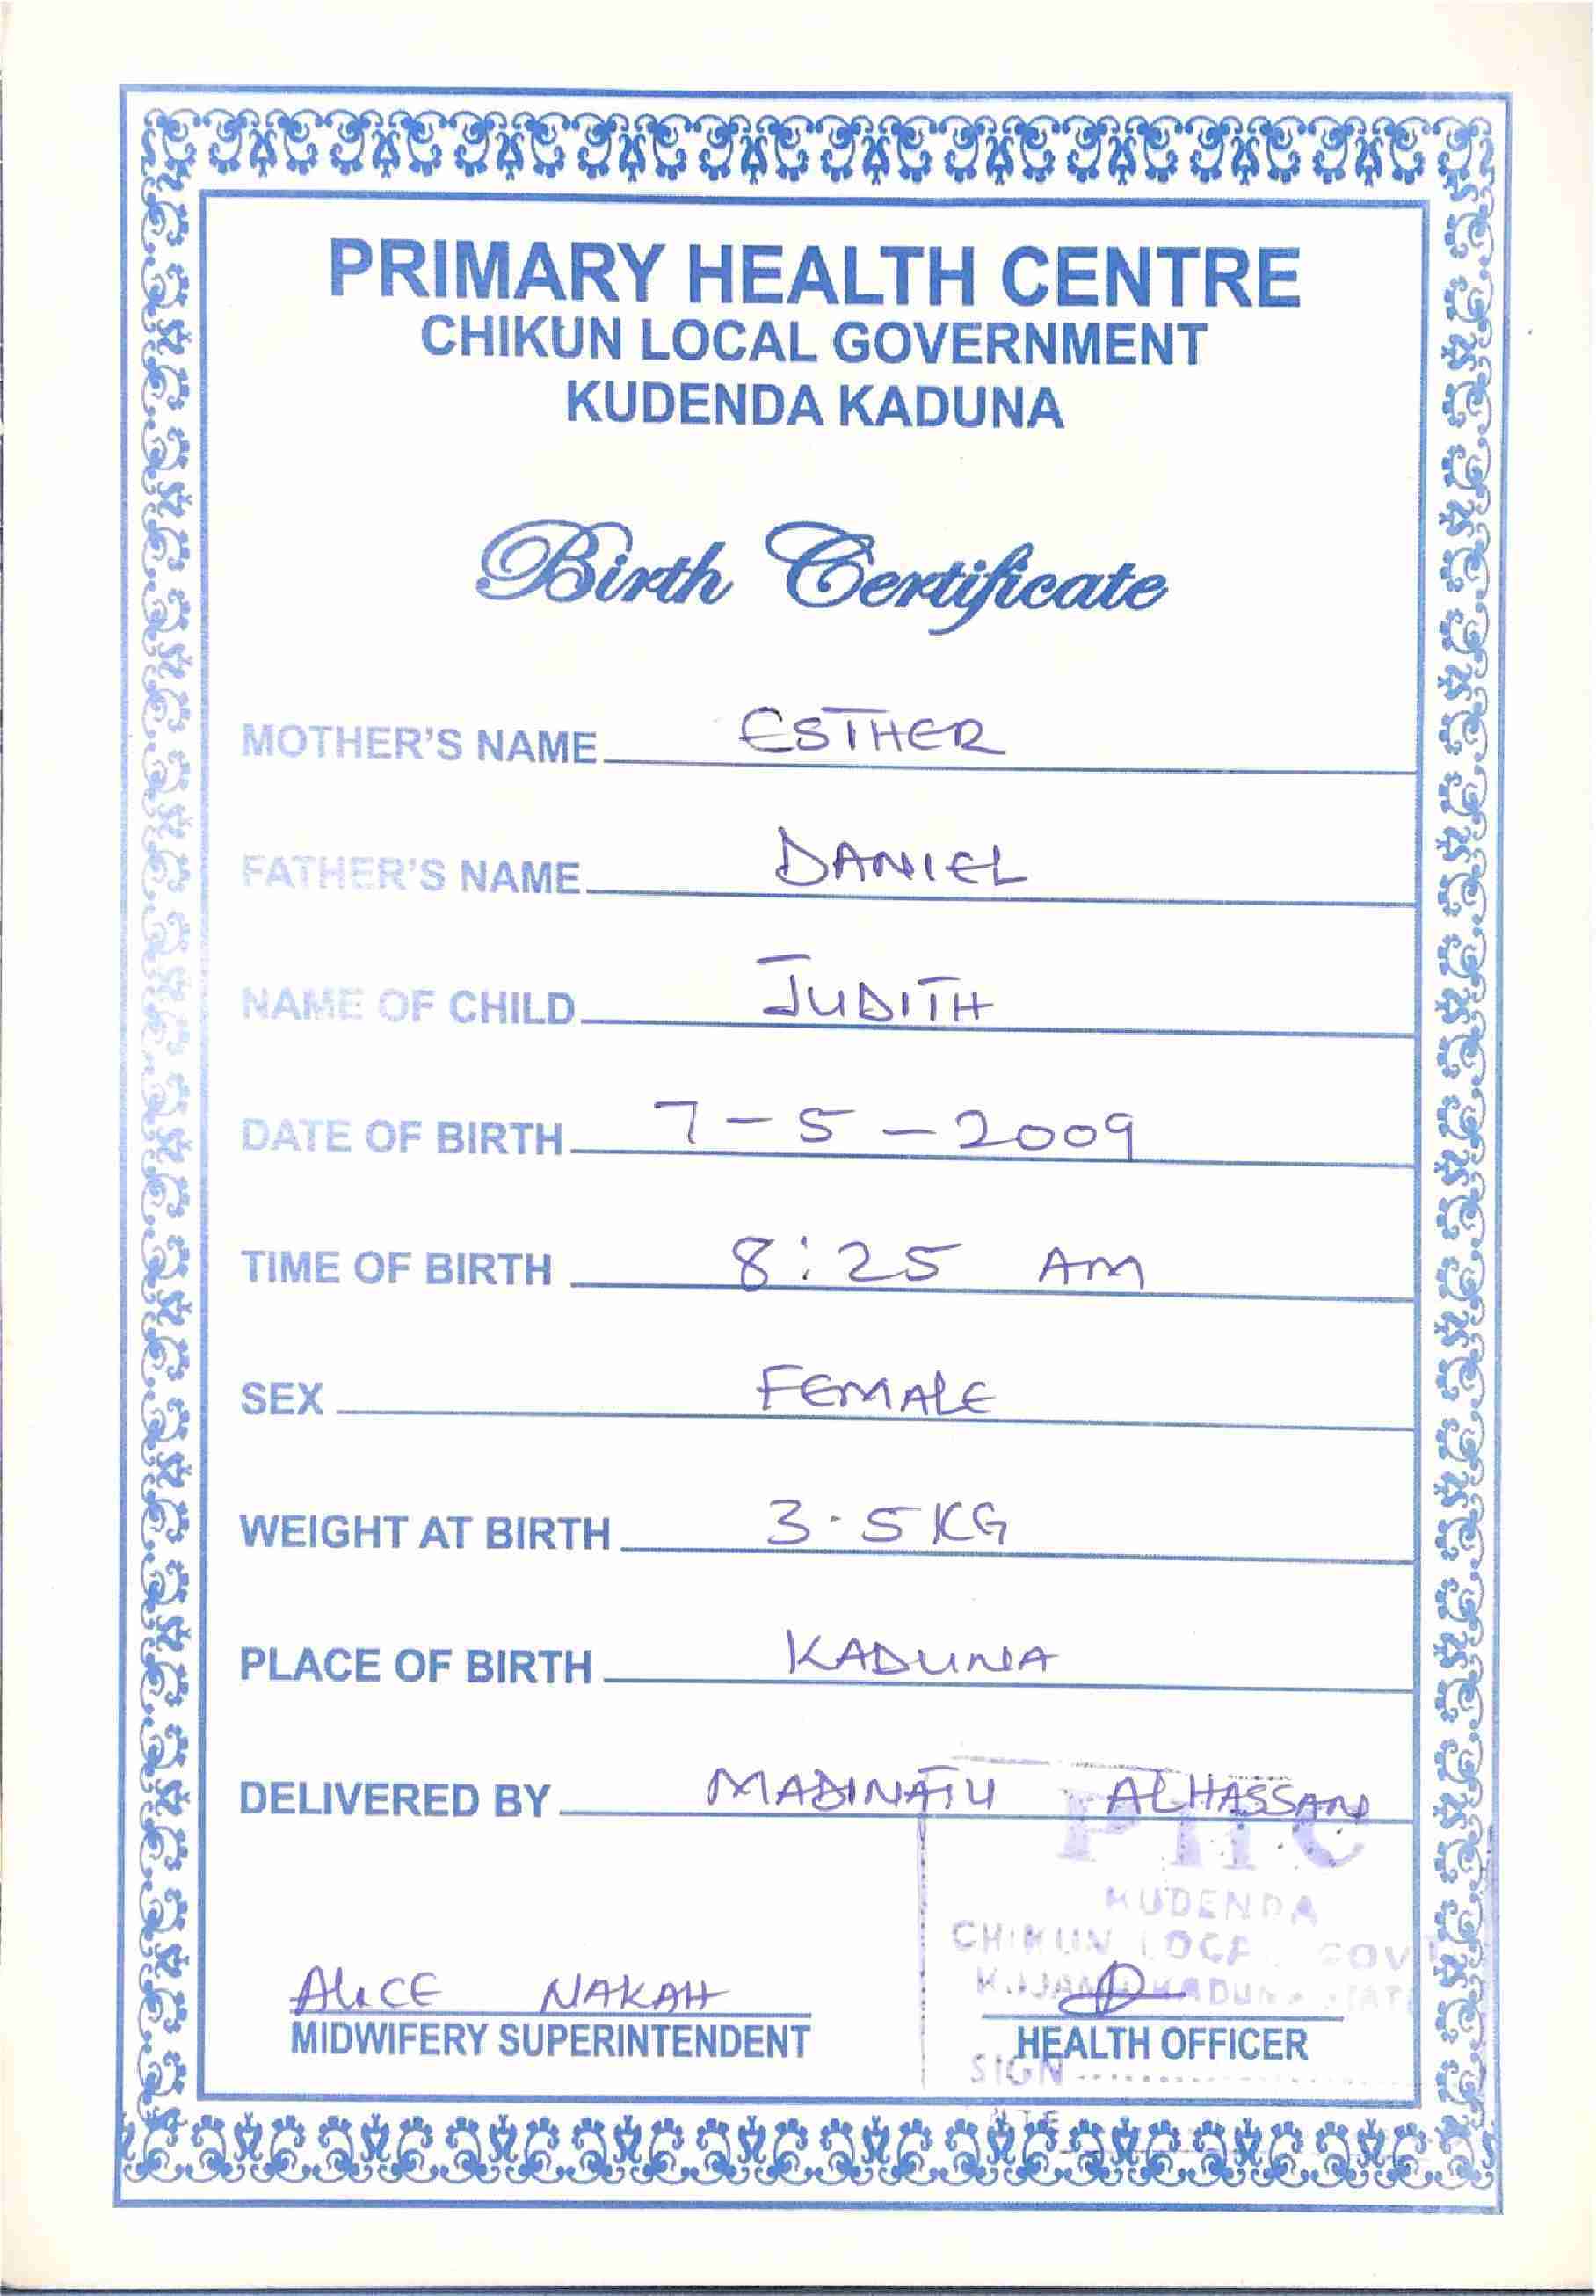 PRIMARY HEALTH CENTRE
CHIKUN LOCAL GOVERNMENT
KUDENDA KADUNA
Birth Certificate
MOTHER'S NAME ESTHER
FATHER'S NAME DANIEL
NAME OF CHILD JUDITH
DATE OF BIRTH 7-5-2009
TIME OF BIRTH 8:25 AM
SEX FEMALE
WEIGHT AT BIRTH 3.5KG
PLACE OF BIRTH KADUNA
DELIVERED BY MADINATU ALHASSAN
PHC
KUDENDA
CHIKUN LOCAL GOVT
KADUNA STATE
ALICE NAKAH
MIDWIFERY SUPERINTENDENT
HEALTH OFFICER
SIGN